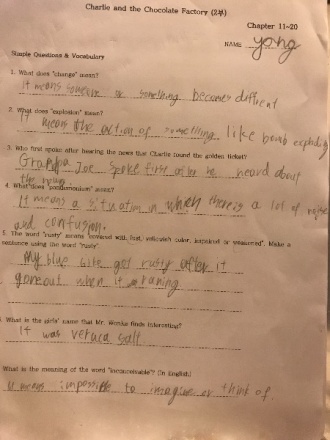 Charlie and the Chocolate Factory (2부)
Chapter 11~20
NAME yong
Simple Questions & Vocabulary
1. What does "change" mean?
It means someone or something becomes diffrent
2. What does "explosion" mean?
It means the action of something like bomb exploding
3. Who first spoke after hearing the news that Charlie found the golden ticket?
Grandpa Joe spoke first after he heard about
the news.
4. What does "pandemonium" mean?
It means a situation in which there is a lot of noise
and confusion.
5. The word "rusty" means "covered with rust, yellowish color, impaired or weakened". Make a
sentence using the word "rusty"
My blue bike got rusty after it
goneout when it raning
What is the girls' name that Mr. Wonka finds interesting?
It was veruca salt
What is the meaning of the word "inconceivable"? (In English)
It means impossible to imagine or think of.